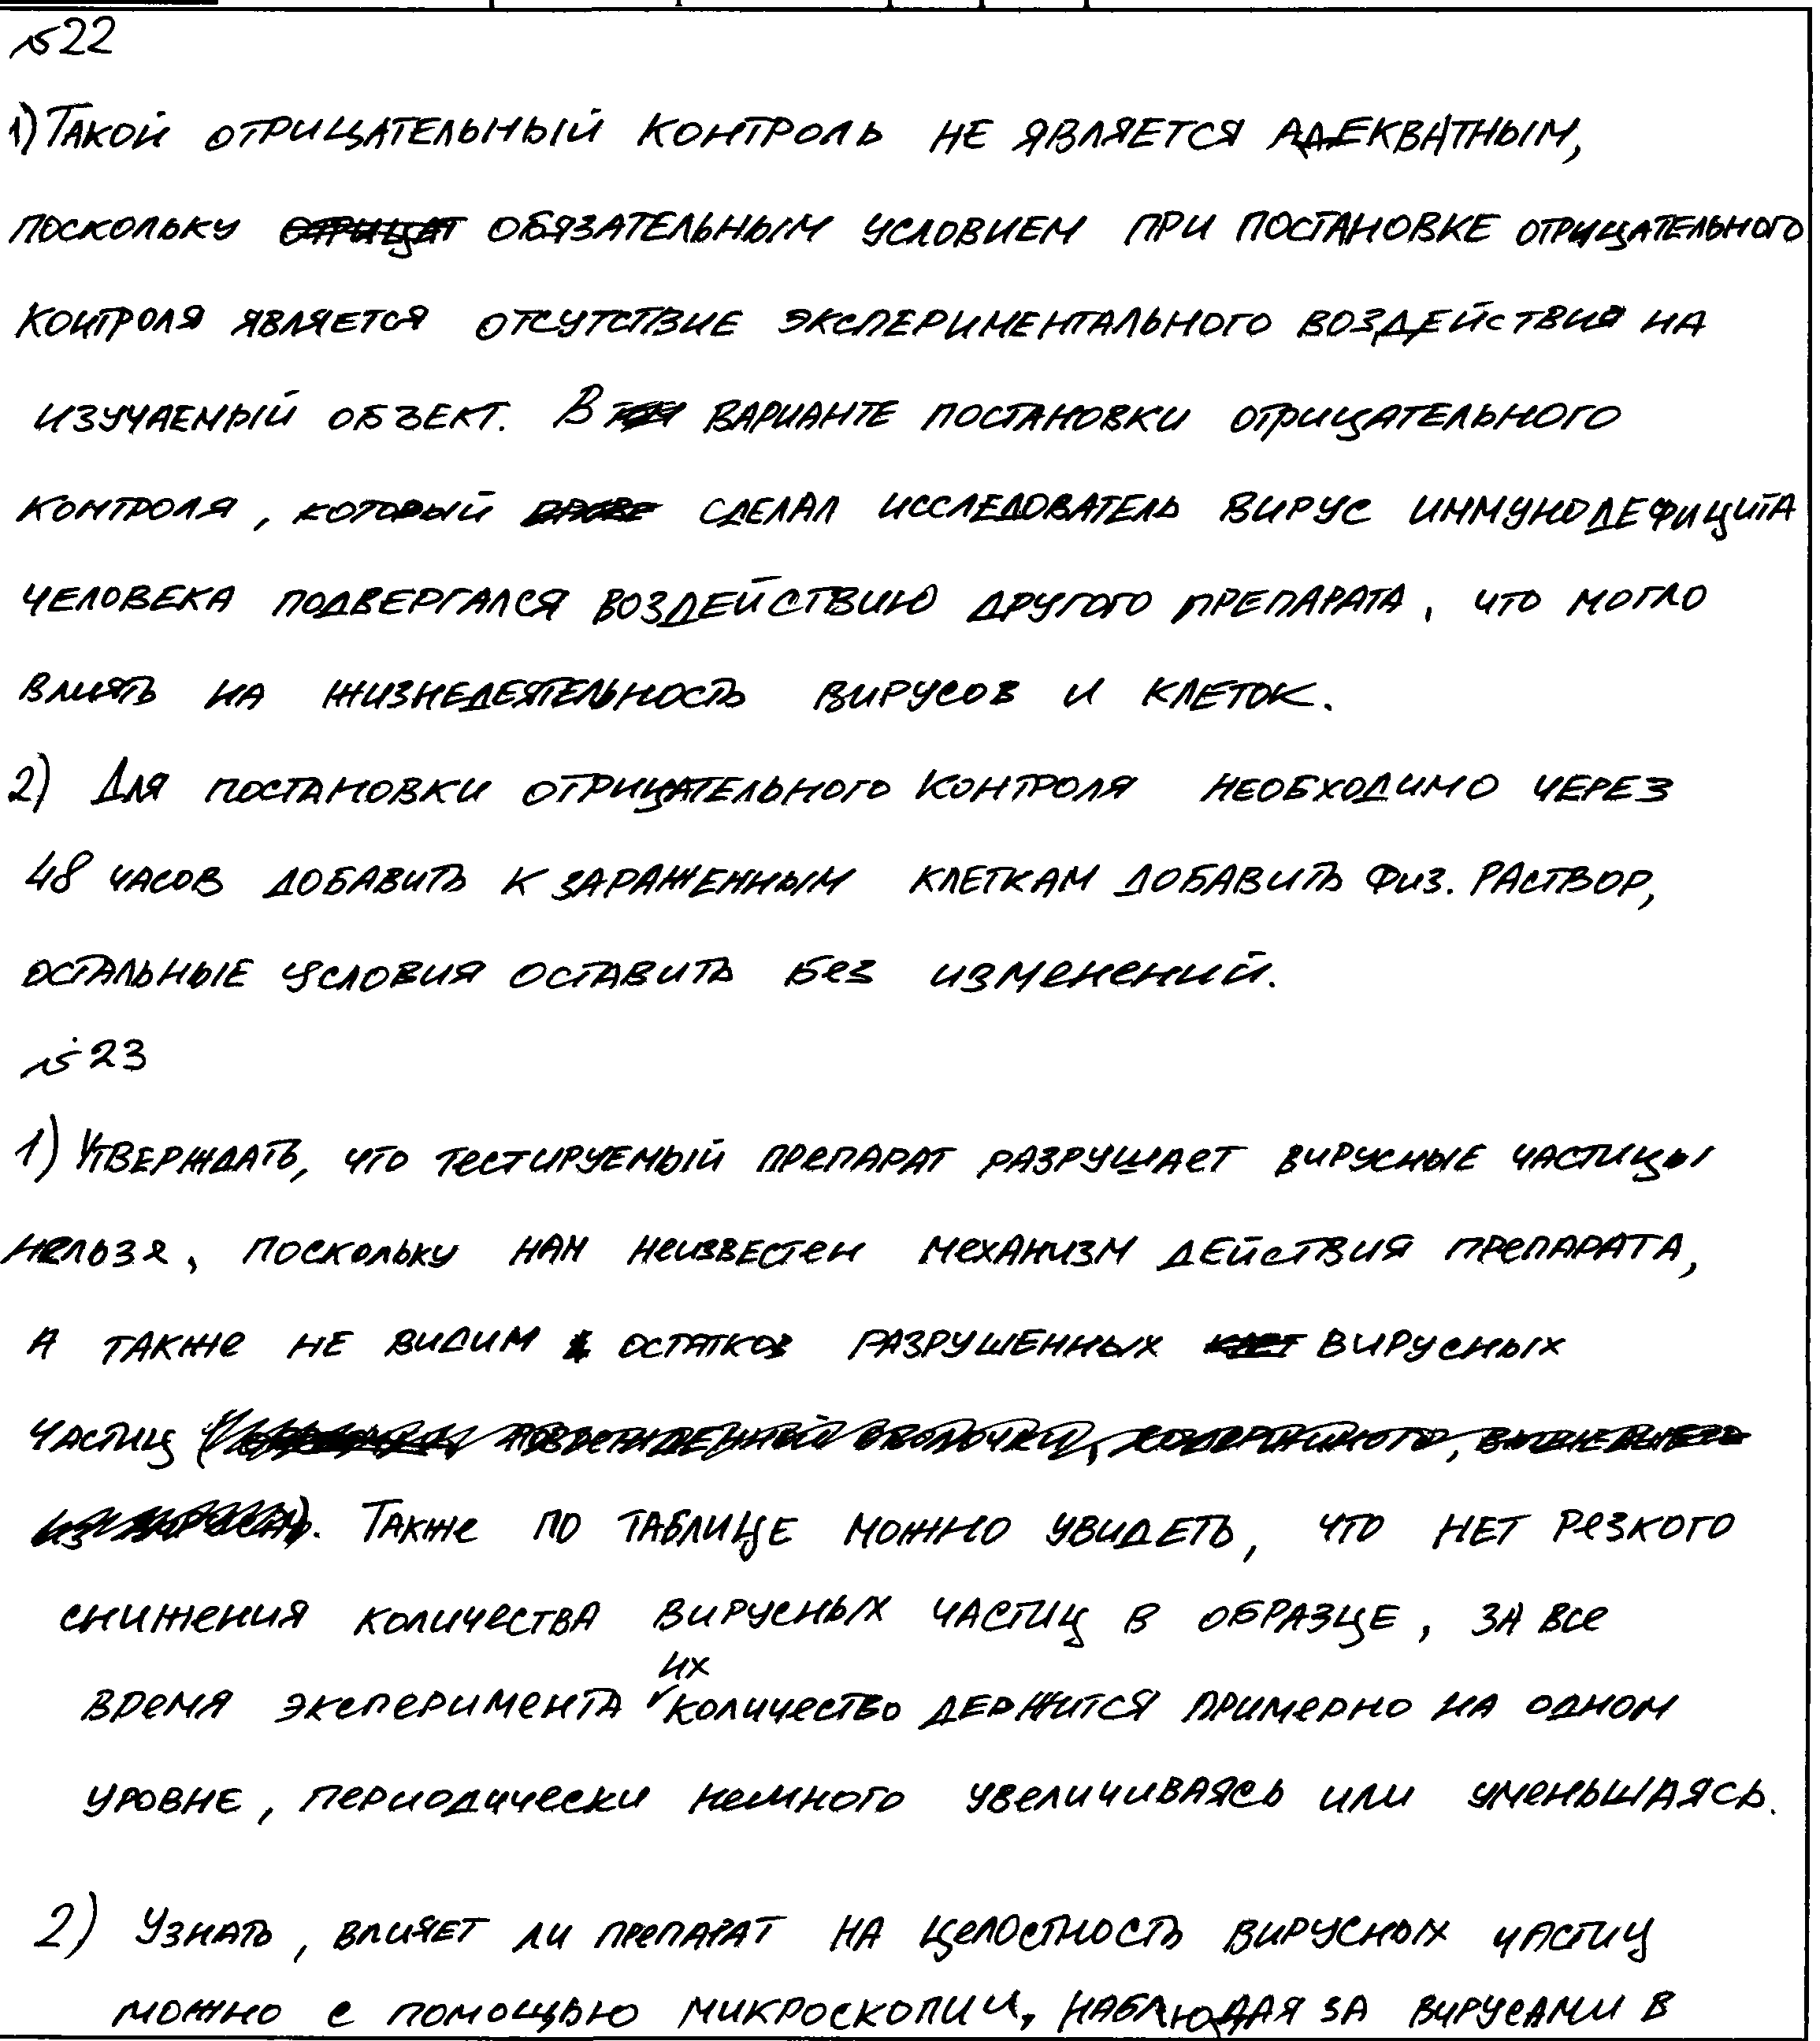 №22
1) Такой отрицательный контроль не является адекватным,
поскольку отрицат обязательным условием при постановке отрицательного
контроля является отсутствие экспериментального воздействия на
изучаемый объект. В варианте постановки отрицательного
контроля, который сделал исследователь вирус иммунодефицита
человека подвергался воздействию другого препарата, что могло
влиять на жизнедеятельность вирусов и клеток.
2) Для постановки отрицательного контроля необходимо через
48 часов добавить к зараженным клеткам добавить физ. раствор,
остальные условия оставить без изменений.
№23
1) Утверждать, что тестируемый препарат разрушает вирусные частицы
нельзя, поскольку нам неизвестен механизм действия препарата,
а также не видим остатков разрушенных вирусных
частиц
. Также по таблице можно увидеть, что нет резкого
снижения количества вирусных частиц в образце, за все
время эксперимента их количество держится примерно на одном
уровне, периодически немного увеличиваясь или уменьшаясь.
2) Узнать, влияет ли препарат на целостность вирусных частиц
можно с помощью микроскопии, наблюдая за вирусами в